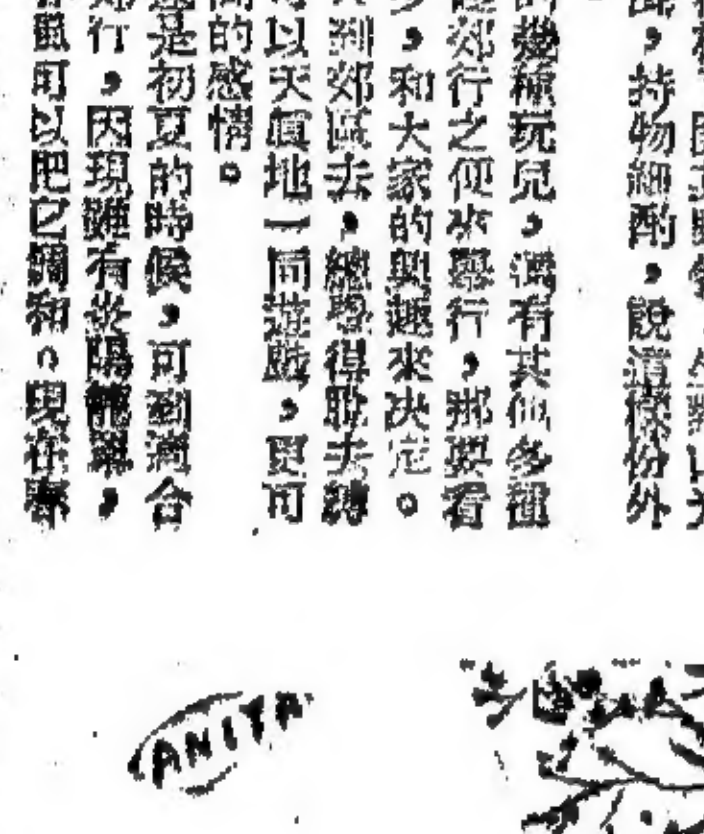 持物細酌，說這樣份外
幾種玩兒，還有其他多種
郊行之便來舉行，那要看
，和大家的興趣來決定。
到郊區去，總覺得脫去縛
以天真地一同遊戲，更可
的感情。
是初夏的時候，可到適合
行，因現雖有炎陽籠罩，
可以把它調和。現在春
ANITA